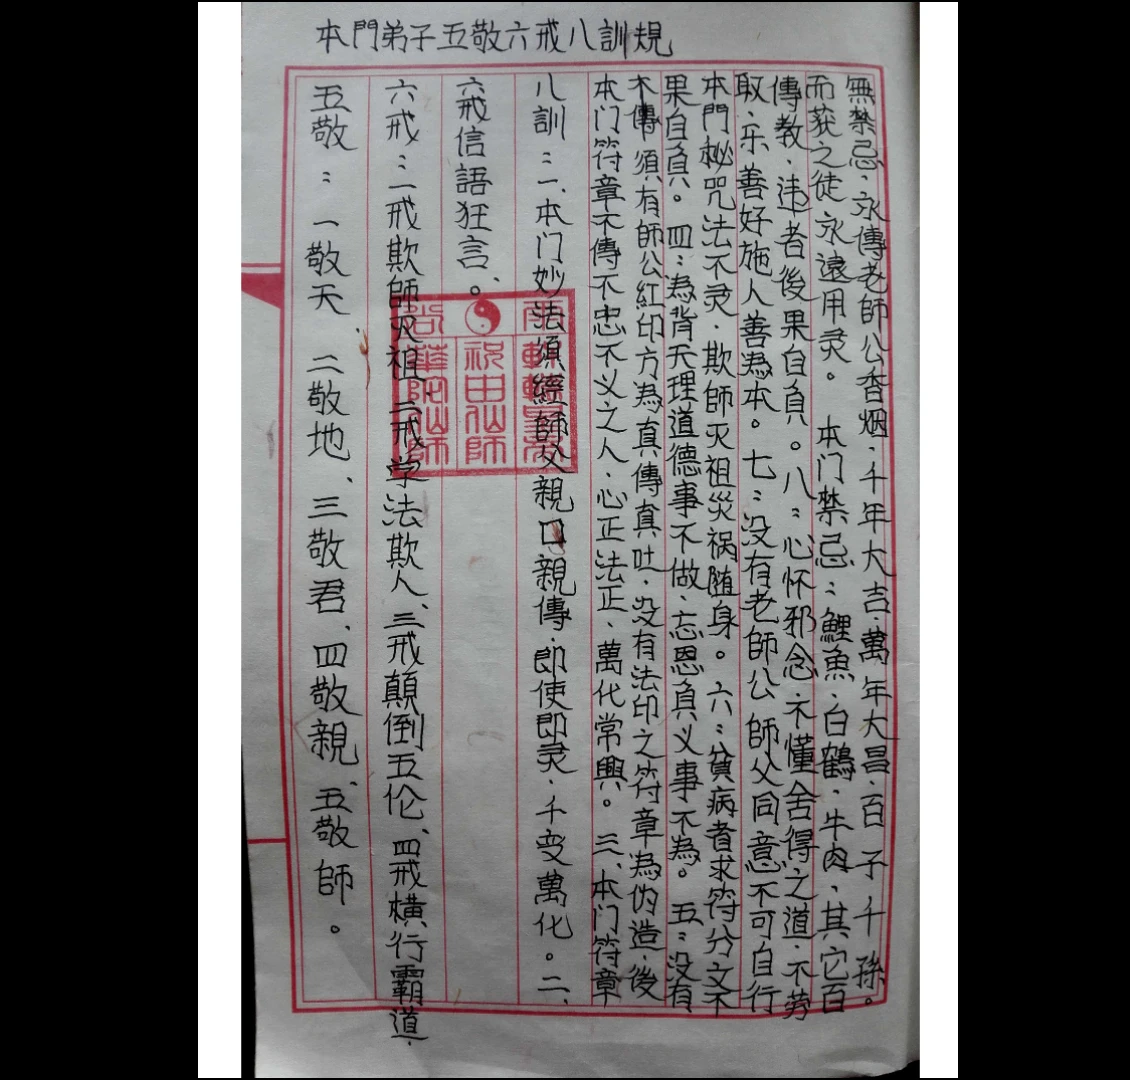 本門弟子五敬六戒八訓規
五敬：一敬天 二敬地、三敬君、四敬親、五敬師。
六戒：一戒欺師灭祖、二戒学法欺人、三戒顛倒五伦、四戒橫行霸道、
六戒信語狂言、。
八訓：一、本门妙法須經師父親口親傳、即使即灵、千变萬化。二、
本门符章不傳不忠不义之人、心正法正、萬代常興。三、本门符章
不傳須有師公紅印方為真傳真吐、没有法印之符章為伪造、後
果自負。四：為背天理道德事不做、忘恩負义事不為。五：没有
本門秘咒法不灵、欺師灭祖災祸随身。六：貧病者求符分文不
取、乐善好施人善為本。七：没有老師公 師父同意不可自行
傳教、违者後果自負。八：心怀邪念、不懂舍得之道、不劳
而获之徒永遠用灵。 本门禁忌：鯉魚、白鶴、牛肉、其它百
無禁忌、永傳老師公香烟、千年大吉、萬年大昌、百子千孫。
祝由仙師
華陀仙師